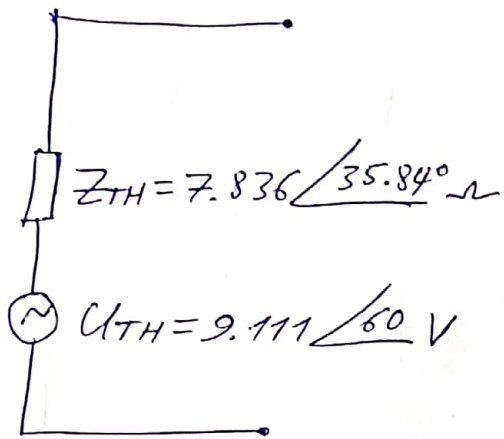 Z_TH = 7.836∠35.84° Ω
U_TH = 9.111∠60 V